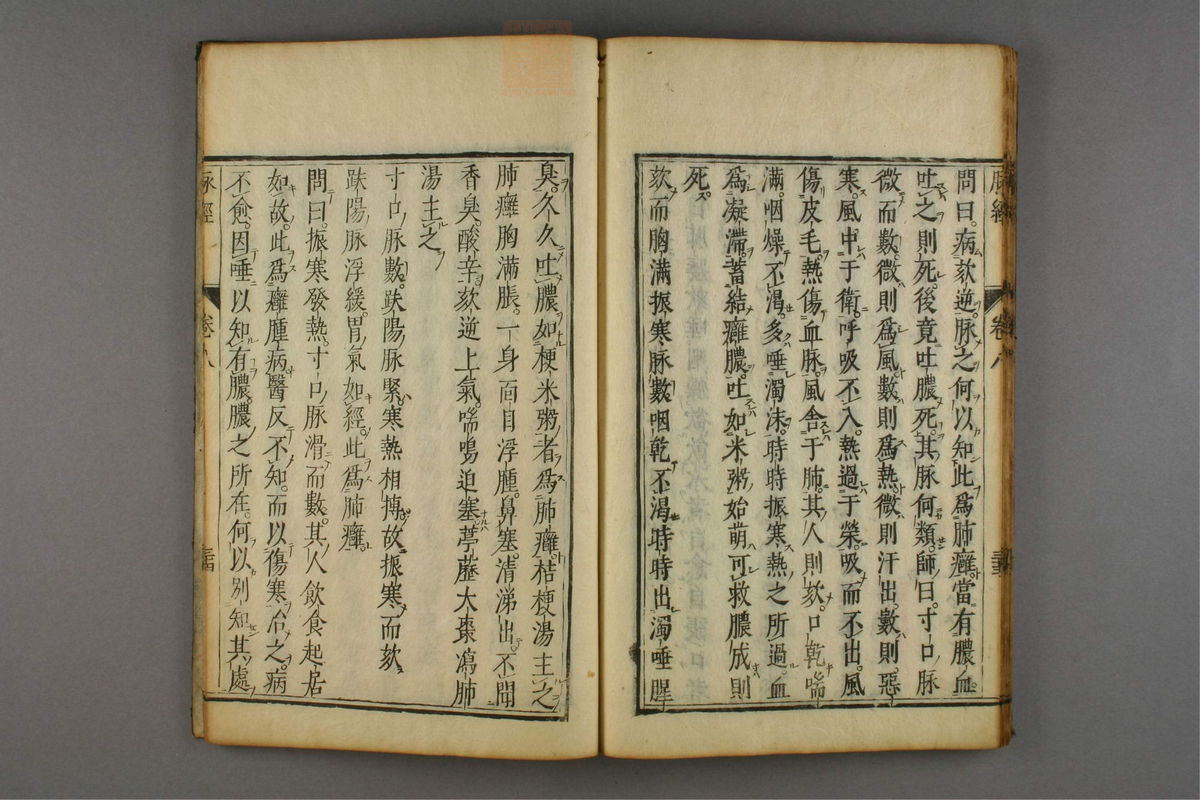 問曰。病欬逆。脉之何以知此爲肺癰。當有膿血
吐之則死。後竟吐膿死。其脉何類。師曰。寸口脉
微而數。微則爲風。數則爲熱。微則汗出。數則惡
寒。風中于衛。呼吸不入。熱過于榮。吸而不出。風
傷皮毛。熱傷血脉。風舎于肺。其人則欬。口乾喘
滿。咽燥不渴。多唾濁沫。時時振寒。熱之所過。血
爲凝滯。蓄結癰膿。吐如米粥。始萌可救。膿成則
死。
欬而胸滿振寒脉數。咽乾不渴。時時出濁唾腥
臭。久久吐膿如梗米粥者。爲肺癰。桔梗湯主之
肺癰胸滿脹。一身面目浮腫。鼻塞。清涕出。不聞
香臭。酸辛。欬逆上氣。喘鳴迫塞。葶藶大棗瀉肺
湯主之
寸口脉數。趺陽脉緊。寒熱相搏。故振寒而欬。
趺陽脉浮緩。胃氣如經。此爲肺癰。
問曰。振寒發熱。寸口脉滑而數。其人飲食起居
如故。此爲癰腫病。醫反不知。而以傷寒治之。病
不愈。因唾以知有膿。膿之所在。何以別知其處
脉經
卷八